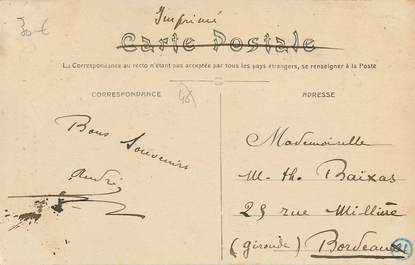 30 €
Imprimé
Carte Postale
La Correspondance au recto n'étant pas acceptée par tous les pays étrangers, se renseigner à la Poste
CORRESPONDANCE
ADRESSE
Bons Souvenirs
André
Mademoiselle
M. Th. Baïxas
25 rue Millière
(gironde) Bordeaux